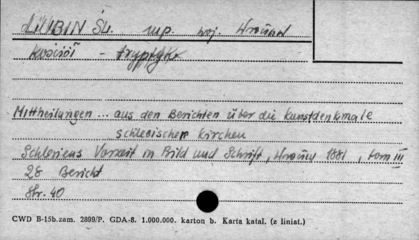 LUBIN ŚL. mp. woj. Wrocław
Kościół - tryptyk
Mittheilungen ... aus den Berichten über die Kunstdenkmale
schlesischer Kirchen
Schlesiens Vorzeit in Bild und Schrift, Wrocław 1881, tom III
28 Bericht
Str. 40
CWD B-15b.zam. 2899/P. GDA-8. 1.000.000. karton b. Karta katal. (z liniat.)